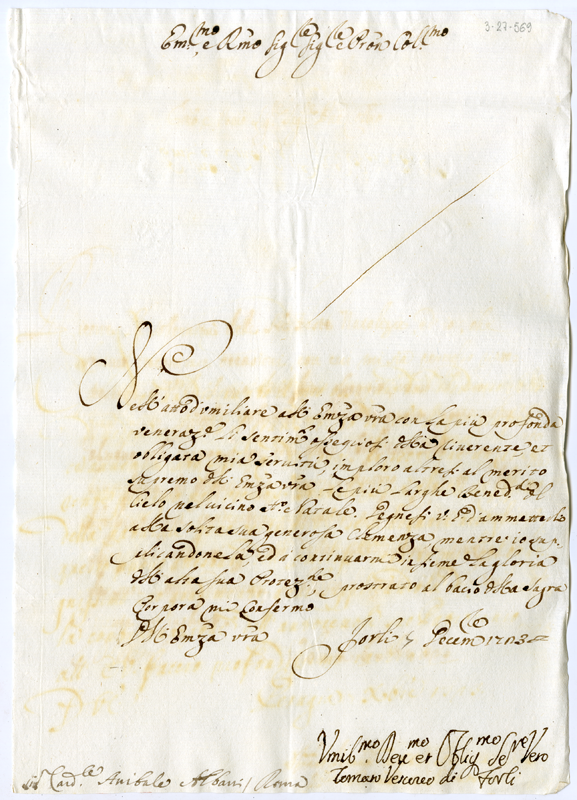 3-27-569
Em.mo e Rmo Sig.re Sig.re e Pron Col.mo
Nell'atto d'umiliare all'Emza vra con la più profonda
veneraz.e li sentim.ti ossequiosi della riverente, et
obligata mia servitù, imploro altresì al merito
supremo dell'Emza vra le più larghe Bened.ni del
Cielo nel vicino Sto Natale. Degnesi V. E. d'ammetterle
alla solita sua generosa Clemenza, mentre io sup-
plicandonela, ed à continuarmi insieme la gloria
dell'alta sua Protez.ne, prostrato al bacio della Sagra
Porpora mi confermo
Dell'Emza vra Forlì 7 Decem.re 1713
Vmil.mo Deu.mo et Oblig.mo Se.re Vero
Tomaso Vescovo di Forlì
Sr. Card.le Anibale Albani / Roma